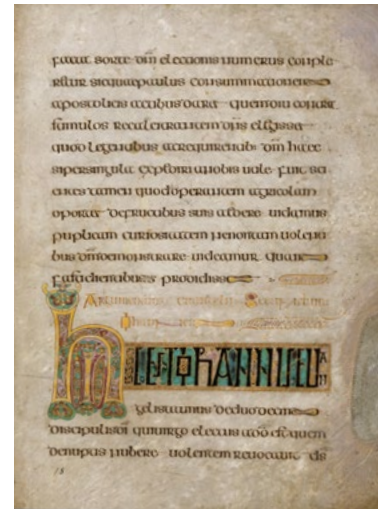 sorte dni electionis numerus conple
retur sicquae paulus consummationem
apostolicis actibus daret quem diu contra
stimulos recalcitrantem dns
quod legentibus ac requirentib dm haec
si per singula expediri a nobis utile fuit sci
entes tamen quod operantem agricolam
oportet de fructibus suis edere uitamus
puplicam curiositatem ne non tam uolenti
bus dm demonstrare uideamur quam
fastidientibus prodidisse
Argumentum
hic EST IOHANNIS EU AN
gelista unus de duodecem
discipulis di qui uirgo electus a do est quem
de nuptis nubere uolentem reuocauit ds
18